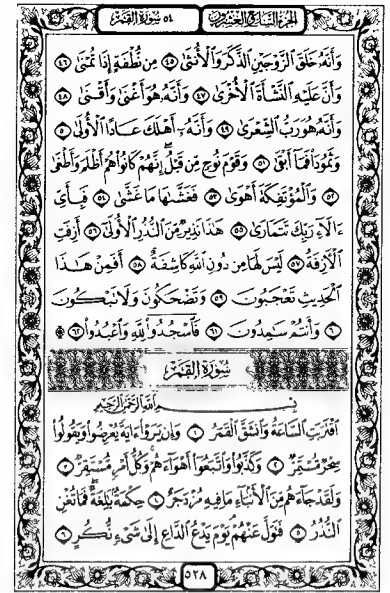 الجزء السابع والعشرون ٥٤ سورة القمر
وَأَنَّهُ خَلَقَ الزَّوْجَيْنِ الذَّكَرَ وَالْأُنثَىٰ ٤٥ مِن نُّطْفَةٍ إِذَا تُمْنَىٰ ٤٦
وَأَنَّ عَلَيْهِ النَّشْأَةَ الْأُخْرَىٰ ٤٧ وَأَنَّهُ هُوَ أَغْنَىٰ وَأَقْنَىٰ ٤٨
وَأَنَّهُ هُوَ رَبُّ الشِّعْرَىٰ ٤٩ وَأَنَّهُ أَهْلَكَ عَادًا الْأُولَىٰ ٥٠
وَثَمُودَا فَمَا أَبْقَىٰ ٥١ وَقَوْمَ نُوحٍ مِّن قَبْلُ إِنَّهُمْ كَانُوا هُمْ أَظْلَمَ وَأَطْغَىٰ
٥٢ وَالْمُؤْتَفِكَةَ أَهْوَىٰ ٥٣ فَغَشَّاهَا مَا غَشَّىٰ ٥٤ فَبِأَيِّ
ءَالَاءِ رَبِّكَ تَتَمَارَىٰ ٥٥ هَٰذَا نَذِيرٌ مِّنَ النُّذُرِ الْأُولَىٰ ٥٦ أَزِفَتِ
الْآزِفَةُ ٥٧ لَيْسَ لَهَا مِن دُونِ اللَّهِ كَاشِفَةٌ ٥٨ أَفَمِنْ هَٰذَا
الْحَدِيثِ تَعْجَبُونَ ٥٩ وَتَضْحَكُونَ وَلَا تَبْكُونَ
٦٠ وَأَنتُمْ سَامِدُونَ ٦١ فَاسْجُدُوا لِلَّهِ وَاعْبُدُوا ۩ ٦٢
سُورَةُ الْقَمَرِ
بِسْمِ اللَّهِ الرَّحْمَٰنِ الرَّحِيمِ
اقْتَرَبَتِ السَّاعَةُ وَانشَقَّ الْقَمَرُ ١ وَإِن يَرَوْا ءَايَةً يُعْرِضُوا وَيَقُولُوا
سِحْرٌ مُّسْتَمِرٌّ ٢ وَكَذَّبُوا وَاتَّبَعُوا أَهْوَاءَهُمْ وَكُلُّ أَمْرٍ مُّسْتَقِرٌّ ٣
وَلَقَدْ جَاءَهُم مِّنَ الْأَنبَاءِ مَا فِيهِ مُزْدَجَرٌ ٤ حِكْمَةٌ بَالِغَةٌ فَمَا تُغْنِ
النُّذُرُ ٥ فَتَوَلَّ عَنْهُمْ يَوْمَ يَدْعُ الدَّاعِ إِلَىٰ شَيْءٍ نُّكُرٍ ٦
٥٢٨